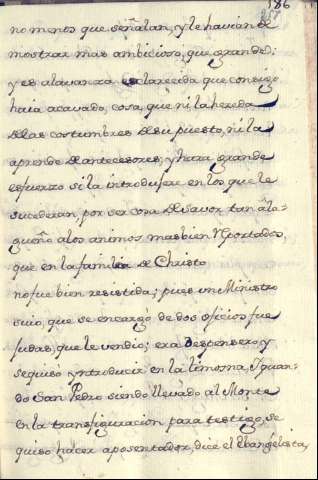 186
no menos que señalan, y le havian de
mostrar mas ambicioso, que grande;
y es alavanza esclarecida que consigo
haia acavado, cosa, que ni la hereda
de las costumbres de su puesto, ni la
aprende de antecesores; y hara grande
esfuerzo si la introdujere en los que le
sucederan, por ser cosa de savor tan ala-
gueño a los animos mas bien reportados,
que en la familia de Christo
no fue bien resistida; pues un Ministro
suio, que se encargó de dos oficios fue
Judas, que le vendio; era Despensero, y
se quiso yntroducir en la limosna, I quan-
do San Pedro siendo llevado al Monte
en la transfiguracion para testigo, se
quiso hacer aposentador, dice el Ebangelista,